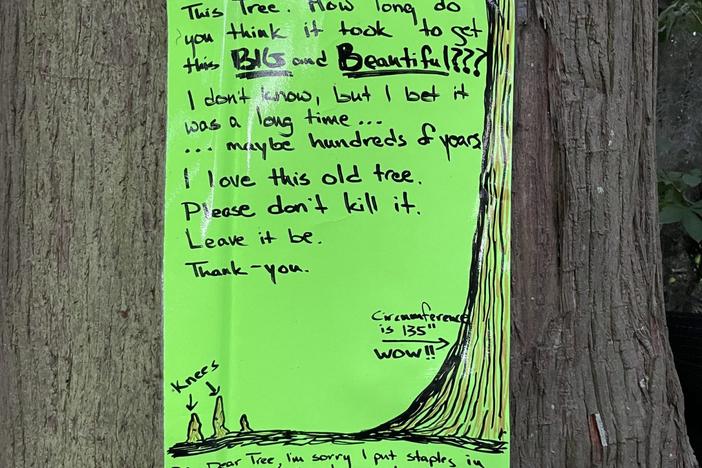 This Tree. How long do
you think it took to get
this BIG and Beautiful???
I don't know, but I bet it
was a long time...
... maybe hundreds of years
I love this old tree.
Please don't kill it.
Leave it be.
Thank-you.
Circumference
is 135"
WOW!!
Knees
Dear Tree, I'm sorry I put staples in